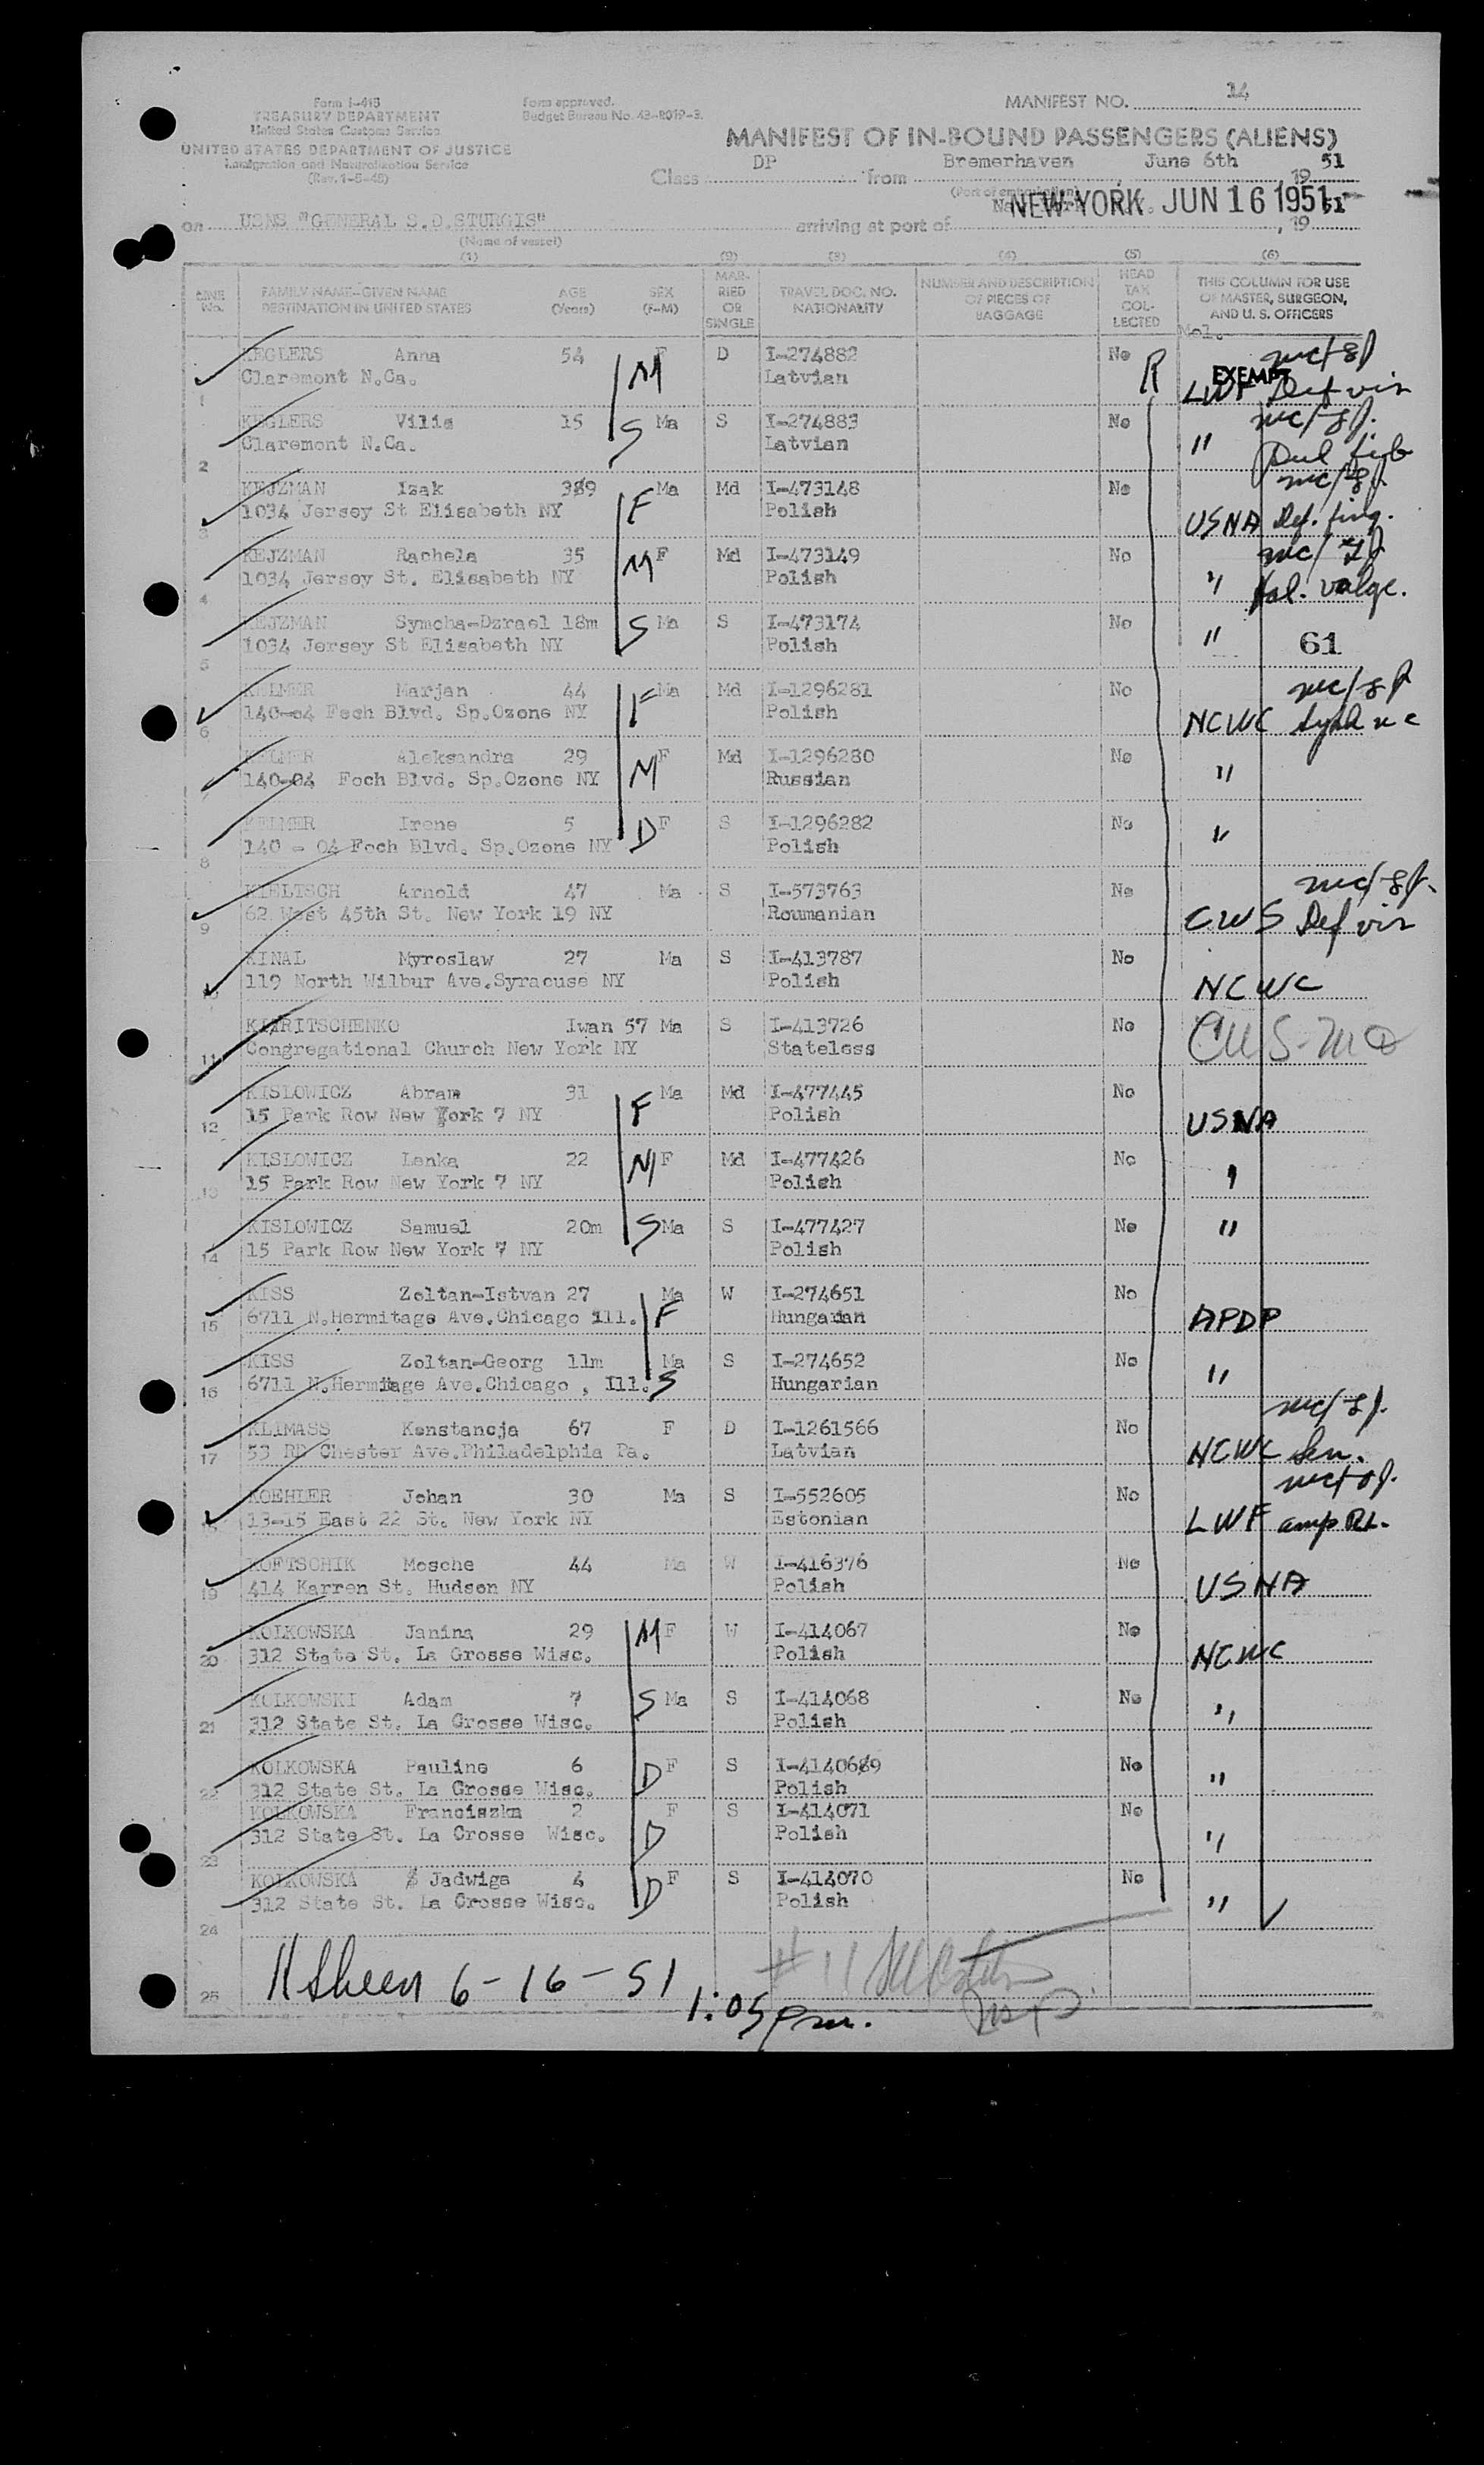 MANIFEST NO. 14
Form I-415
TREASURY DEPARTMENT
United States Customs Service
UNITED STATES DEPARTMENT OF JUSTICE
Immigration and Naturalization Service
(Rev. 1-5-48)
Form approved.
Budget Bureau No. 43-R019-3.
MANIFEST OF IN-BOUND PASSENGERS (ALIENS)
Class DP from Bremerhaven, June 6th, 19 51
(Port of embarkation)
on USNS "GENERAL S.D.STURGIS" arriving at port of NEW YORK JUN 16 1951, 19 51
(Name of vessel)
(1) (2) (3) (4) (5) (6)
LINE No. FAMILY NAME-GIVEN NAME DESTINATION IN UNITED STATES AGE (Years) SEX (F-M) MARRIED OR SINGLE TRAVEL DOC. NO. NATIONALITY NUMBER AND DESCRIPTION OF PIECES OF BAGGAGE HEAD TAX COLLECTED THIS COLUMN FOR USE OF MASTER, SURGEON, AND U. S. OFFICERS
KEGLERS Anna 54 M F D I-274882 No R EXEMPT
1 Claremont N.Ca. Latvian LWF Def vis
KEGLERS Vilis 15 S Ma S I-274883 No
2 Claremont N.Ca. Latvian "
KEJZMAN Izak 389 F Ma Md I-473148 No
3 1034 Jersey St Elisabeth NY Polish USNA Def. fing.
KEJZMAN Rachela 35 M F Md I-473149 No
4 1034 Jersey St. Elisabeth NY Polish "
KEJZMAN Symcha-Dzrael 18m S Ma S I-473174 No
5 1034 Jersey St Elisabeth NY Polish " 61
KELMER Marjan 44 F Ma Md I-1296281 No
6 140-04 Foch Blvd. Sp.Ozone NY Polish NCWC
KELMER Aleksandra 29 M F Md I-1296280 No
7 140-04 Foch Blvd. Sp.Ozone NY Russian "
KELMER Irene 5 D F S I-1296282 No
8 140 - 04 Foch Blvd. Sp.Ozone NY Polish "
KIELTSCH Arnold 47 Ma S I-573763 No
9 62 West 45th St. New York 19 NY Roumanian CWS Def vis
KINAL Myroslaw 27 Ma S I-413787 No
10 119 North Wilbur Ave.Syracuse NY Polish NCWC
KIRITSCHENKO Iwan 57 Ma S I-413726 No
11 Congregational Church New York NY Stateless CWS
KISLOWICZ Abram 31 F Ma Md I-477445 No
12 15 Park Row New York 7 NY Polish USNA
KISLOWICZ Lenka 22 M F Md I-477426 No
13 15 Park Row New York 7 NY Polish "
KISLOWICZ Samuel 20m S Ma S I-477427 No
14 15 Park Row New York 7 NY Polish "
KISS Zoltan-Istvan 27 F Ma W I-274651 No
15 6711 N.Hermitage Ave.Chicago ill. Hungarian APDP
KISS Zoltan-Georg 11m S Ma S I-274652 No
16 6711 N.Hermitage Ave.Chicago , Ill. Hungarian "
KLIMASS Konstancja 67 F D I-1261566 No
17 53 RD Chester Ave.Philadelphia Pa. Latvian NCWC Sen.
KOEHLER Johan 30 Ma S I-552605 No
18 13-15 East 22 St. New York NY Estonian LWF amp
KOFTSCHIK Mosche 44 Ma W I-416376 No
19 414 Karren St. Hudson NY Polish USNA
KOLKOWSKA Janina 29 M F W I-414067 No
20 312 State St. La Grosse Wisc. Polish NCWC
KOLKOWSKI Adam 7 S Ma S I-414068 No
21 312 State St. La Grosse Wisc. Polish "
KOLKOWSKA Pauline 6 D F S I-4140689 No
22 312 State St. La Grosse Wisc. Polish "
KOLKOWSKA Franciszka 2 F S I-414071 No
23 312 State St. La Crosse Wisc. D Polish "
KOLKOWSKA Jadwiga 4 D F S I-414070 No
24 312 State St. La Crosse Wisc. Polish "
25 H Sheen 6-16-51
1:05 pm.